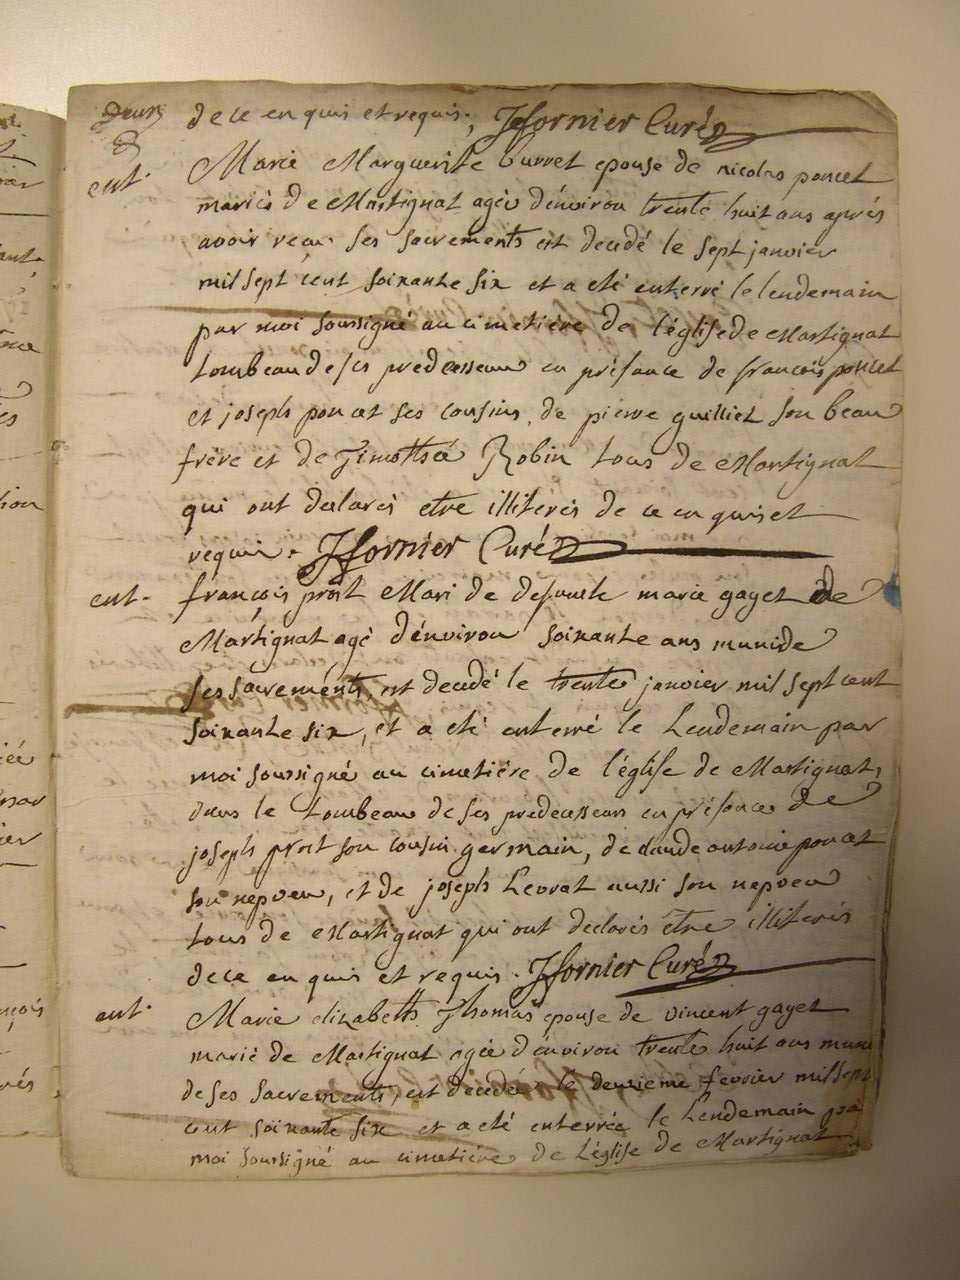 deux
de ce en quis et requis. JFfornier Curé
8
ent. Marie Marguerite burret epouse de nicolas poncet
mariés de Martignat agée d'énviron trente huit ans aprés
avoir reçu ses sacrements est decedé le sept janvier
mil sept cent soixante six et a eté enterré le lendemain
par moi soussigné au cimetiére de l'église de Martignat
tombeau de ses predecesseurs en présance de francois poncet
et joseph poncet ses cousins, de pierre guilliet son beau
frère et de Timothée Robin tous de Martignat
qui ont declarés etre illiterés de ce en quis et
requis. JFfornier Curé
ent. françois prost Mari de defuncte marie gayet de
Martignat agé d'énviron soixante ans muni de
ses sacreménts est decedé le trente janvier mil sept cent
soixante six, et a eté enterré le Lendemain par
moi soussigné au cimetiére de l'église de Martignat,
dans le tombeau de ses predecesseurs en présance de
joseph prost son cousin germain, de claude antoine poncet
son nepveu, et de joseph Levrat aussi son nepveu
tous de Martignat qui ont declarés être illiterés
de ce en quis et requis. JFfornier Curé
ent. Marie elizabeth Thomas epouse de vincent gayet
marié de Martignat agée d'énviron trente huit ans muni
de ses sacrements, est decedée le deuxieme fevrier mil sept
cent soixante six et a eté enterrée le Lendemain par
moi soussigné au cimetiére de L'église de Martignat